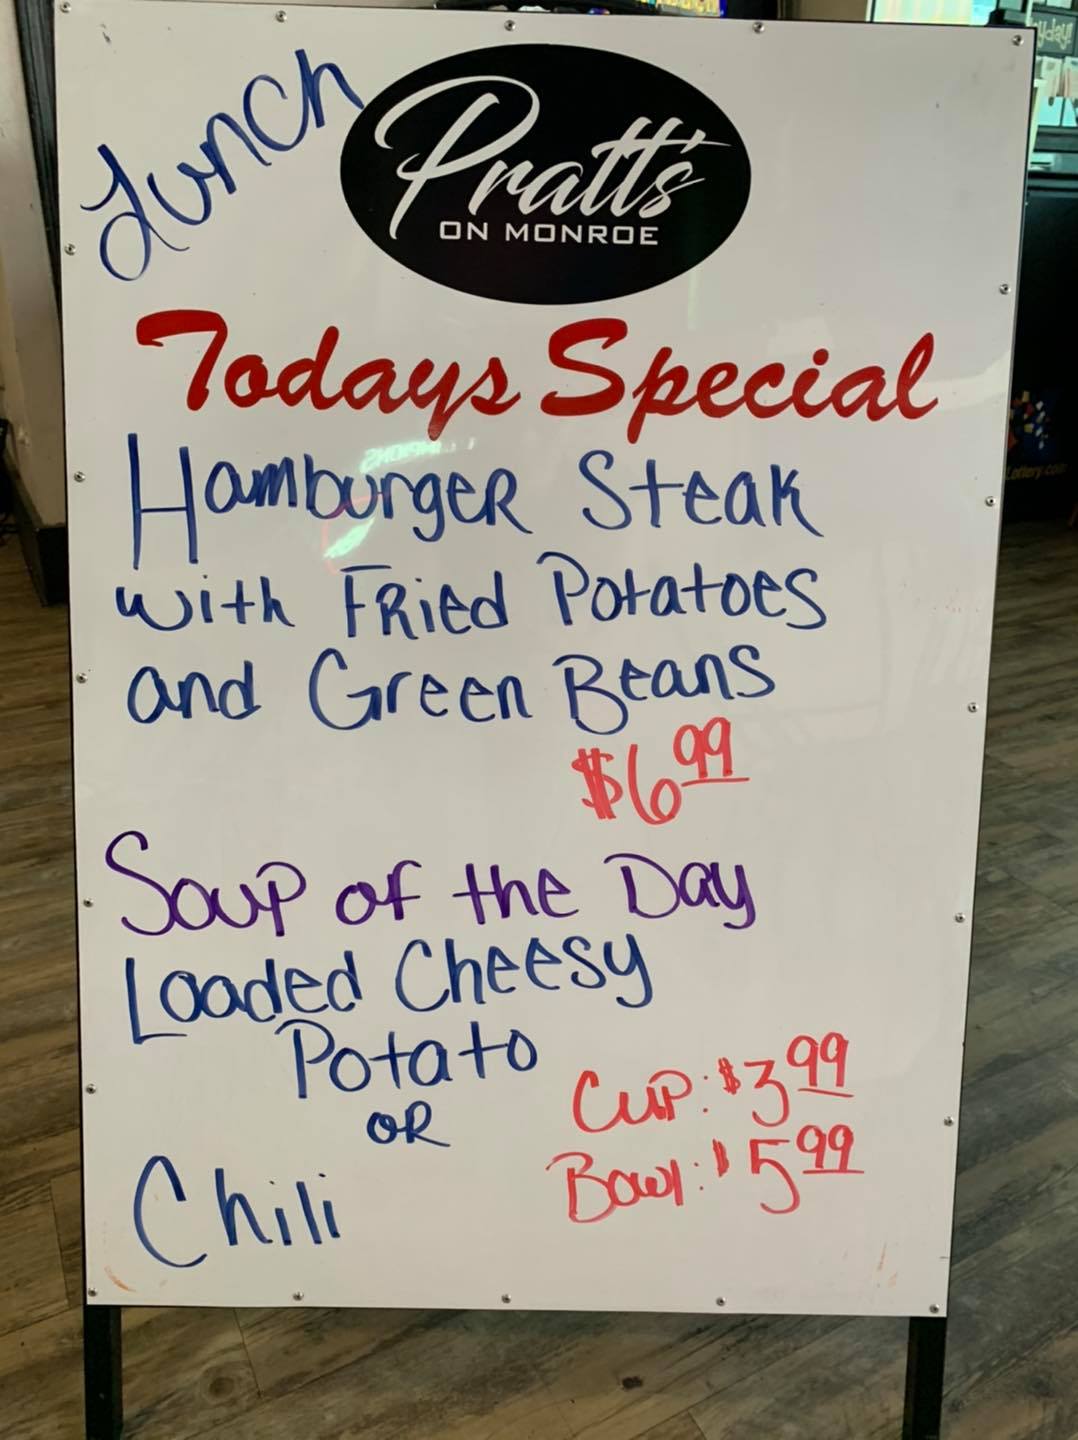 Lunch
Pratt's
ON MONROE
Todays Special
HamburgeR Steak
with FRied Potatoes
and Green Beans
$6.99
Soup of the Day
Loaded Cheesy
Potato
OR
Chili
Cup: $3.99
Bowl: $5.99
yday!
ottery.com